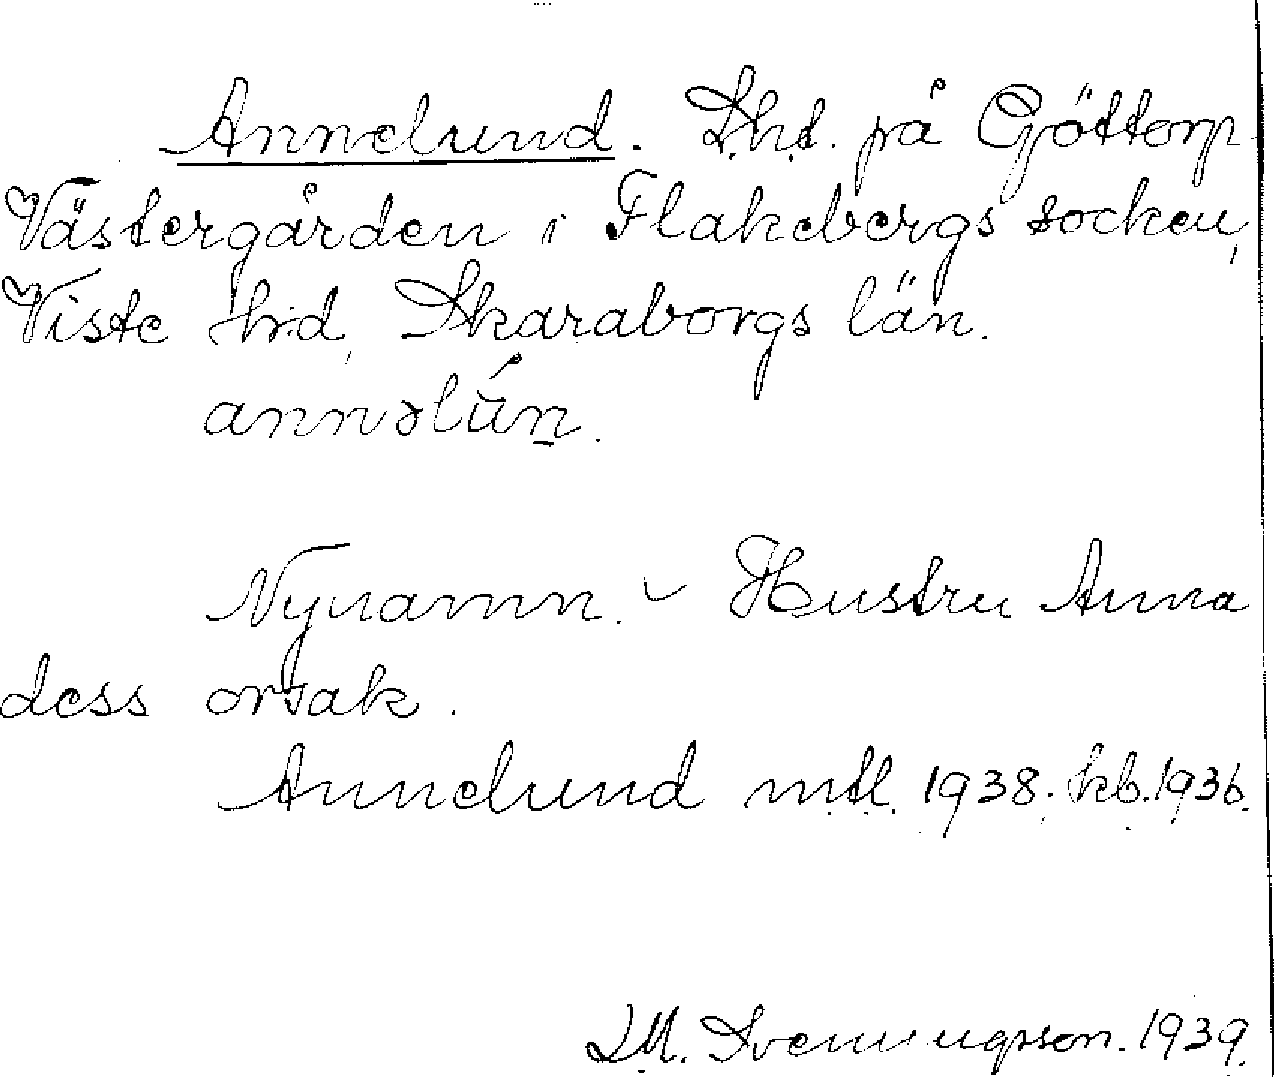 Annelund. Lht. på Göttorp
Västergården i Flakebergs socken,
Viste hd, Skaraborgs län.
annəlún.
Nynamn. Hustru Anna
dess orsak.
Annelund mtl. 1938. kb. 1936.
Svenungsson. 1939.